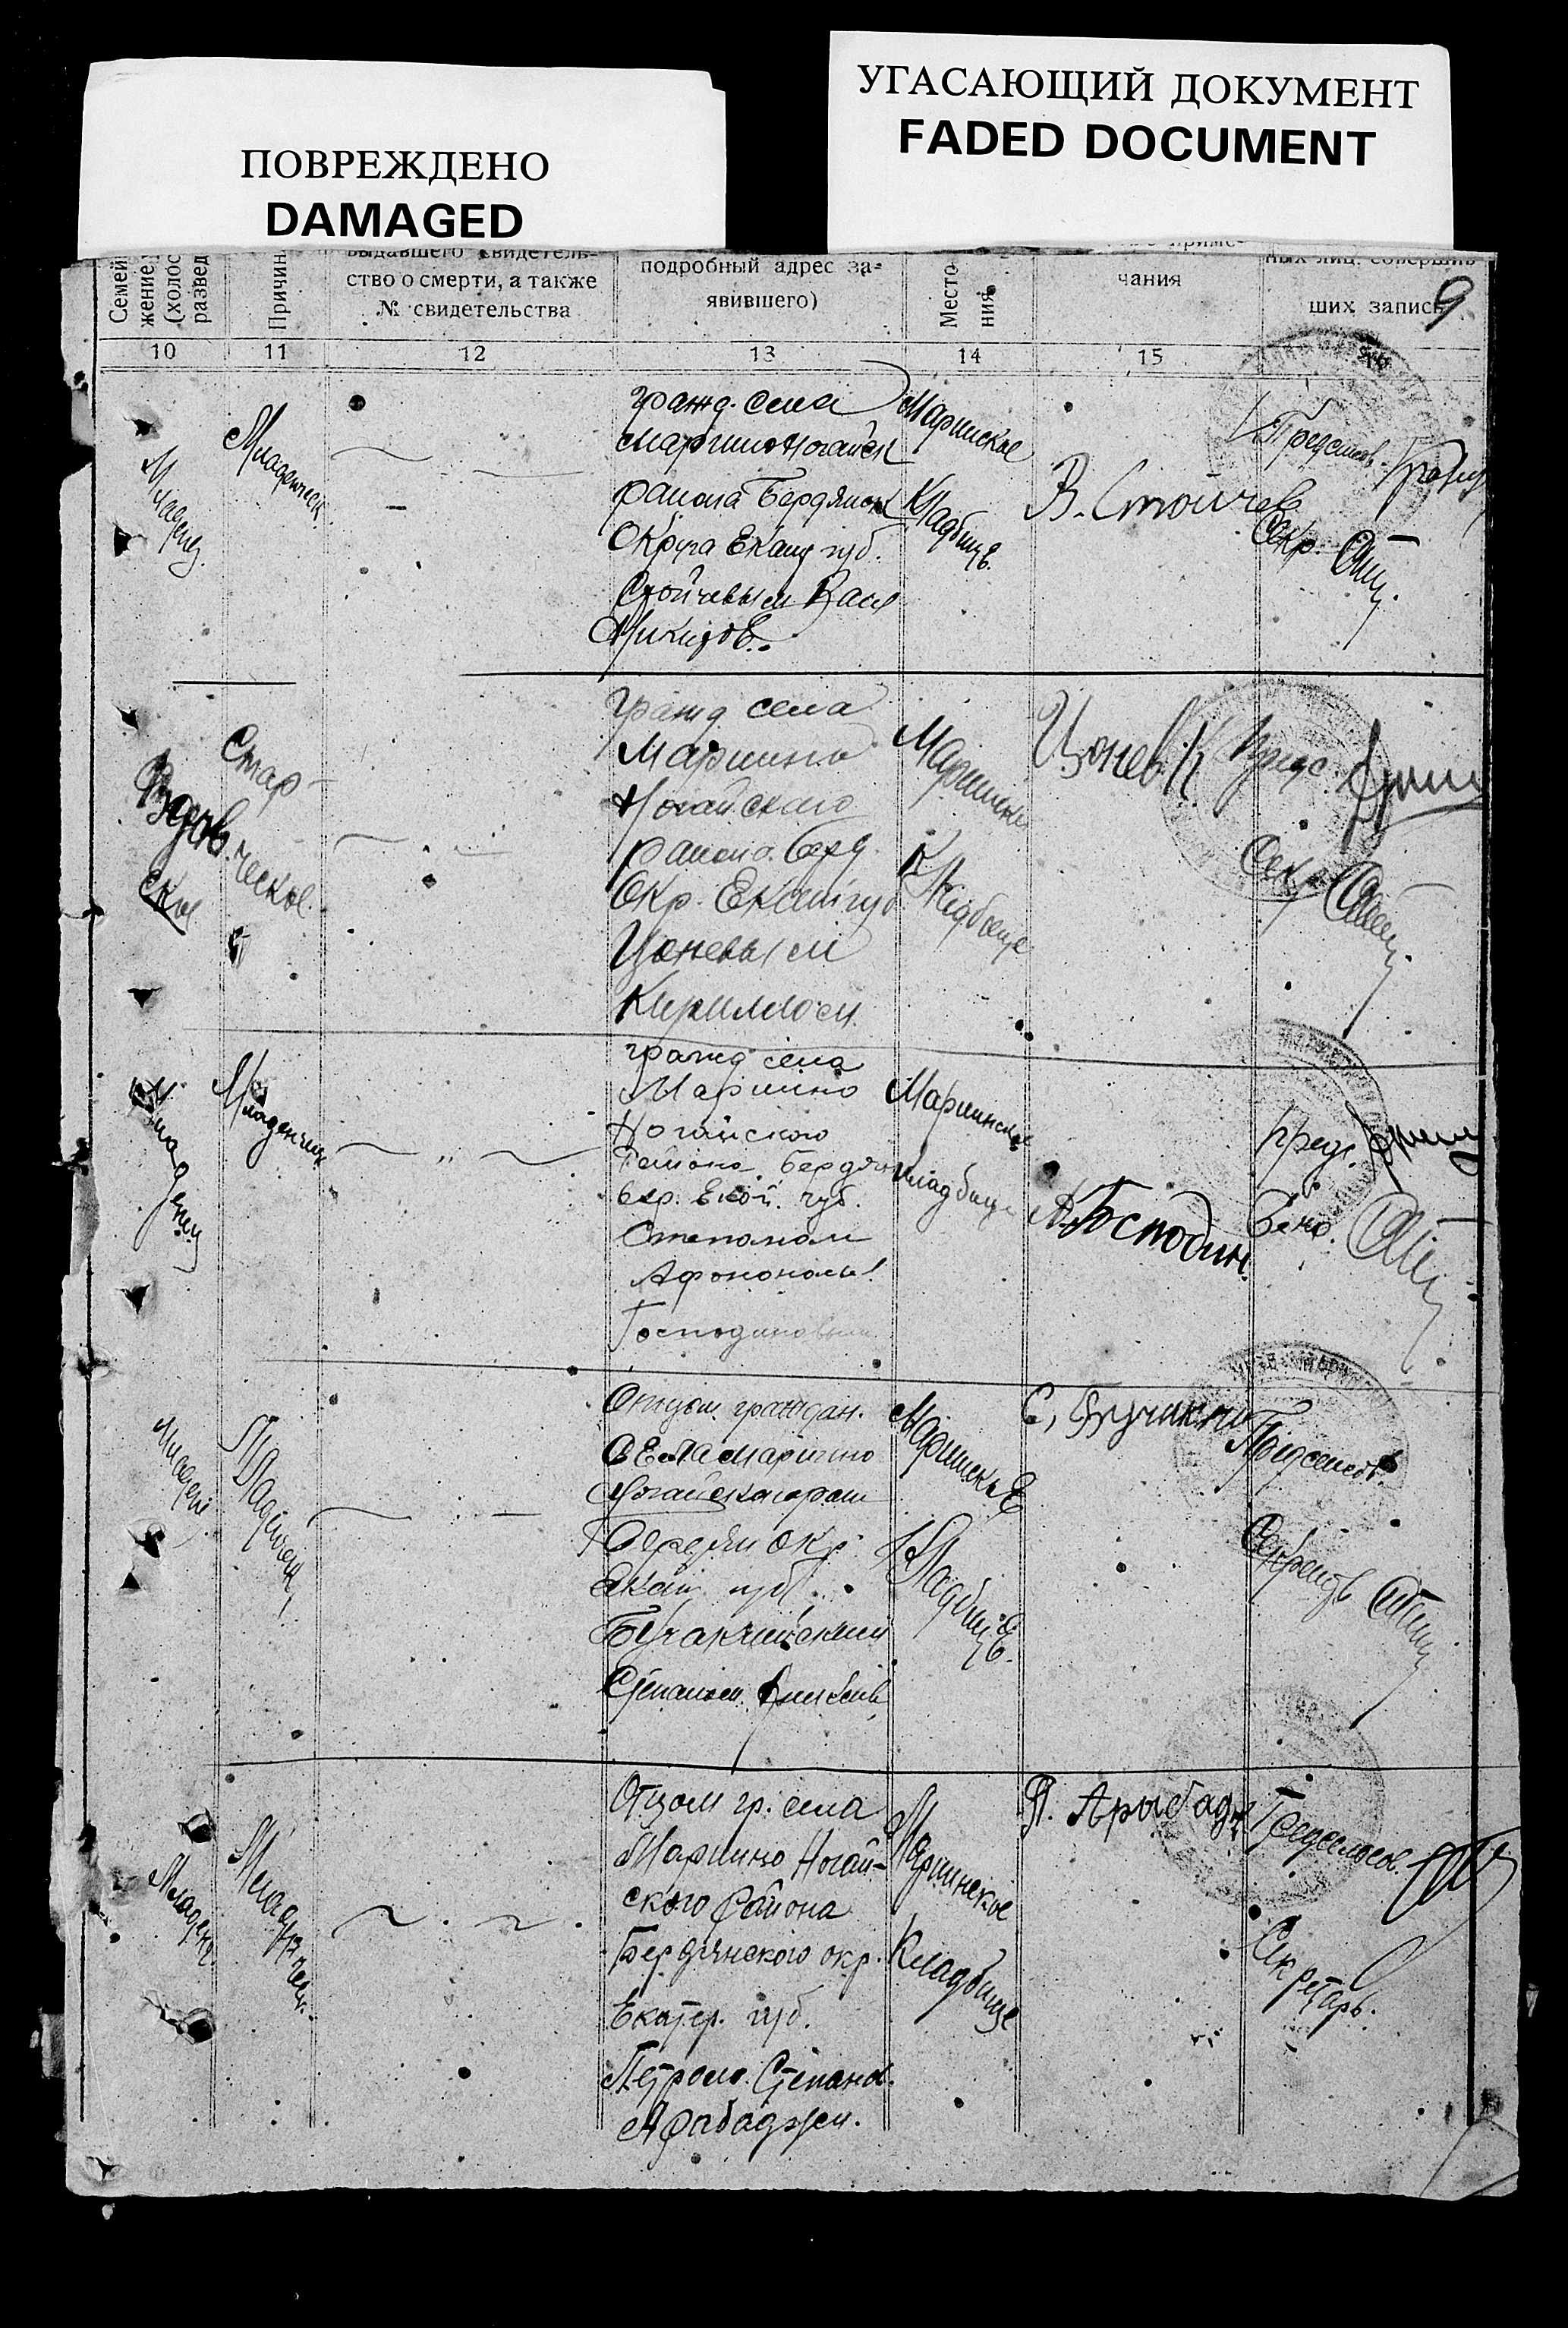 ПОВРЕЖДЕНО
DAMAGED
УГАСАЮЩИЙ ДОКУМЕНТ
FADED DOCUMENT
Семей
жение
(холос
развед
Причин
выдавшего свидетель-
ство о смерти, а также
№ свидетельства
подробный адрес за-
явившего)
Место
ния
чания
ных лиц, совершив
ших запись
9
10
11
12
13
14
15
Младенец
Младенческ.
гражд. села
Марино Ногайск
района Бердянск
Округа Екат губ.
Стойчевым Васил
Никитов.
Маринское
Кладбище
В. Стойчев
Председ.
Секр.
Вдов
ское
Стар-
ческое
гражд села
Марино
Ногайского
района Берд.
Окр. Екат губ
Цоневым
Кириллом
Маринское
Кладбище
Цонев К
Предс.
Секр
Младенец
Младенческ
гражд села
Марино
Ногайского
Района Бердян
Окр. Екат. губ.
Степаном
Афонином
Господиновым
Маринское
Кладбище
А. Господин.
Пред.
Секр.
Младенец
Младенческ
Отцом граждан.
Села Марино
Ногайского рай
Бердян окр
Екат губ.
Степаном
Маринское
Кладбище
Председ.
Секретарь
Младенец
Младенчес.
Отцом гр. села
Марино Ногай-
ского Района
Бердянского окр.
Екатер. губ.
Петром Степанов.
Арабаджи.
Маринское
Кладбище
П. Арабадж
Председ.
Секретарь.